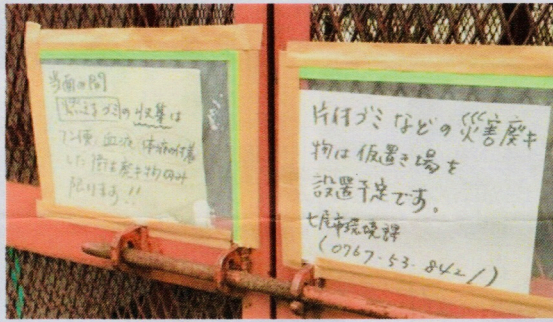 当面の間
燃えるゴミの収集は
フン便、血液、体液の付着
した衛生廃キ物のみ
限ります!!
片付ゴミなどの災害廃キ
物は仮置き場を
設置予定です。
七尾市環境課
(0767-53-8421)